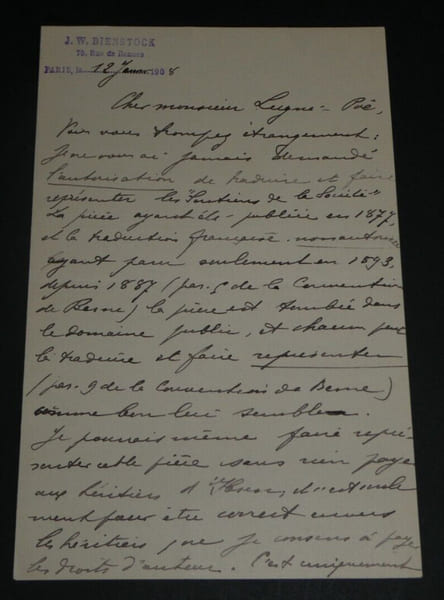 J. W. BIENSTOCK
PARIS, le 12 Janvier 1908
Cher monsieur Lugne-Poé,
Vous vous trompez étrangement:
Je ne vous ai jamais demandé
l'autorisation de traduire et faire
représenter les "Soutiens de la Société"
La pièce ayant été publiée en 1877,
et la traduction française non autorisée
ayant paru seulement en 1893,
depuis 1887 (par. 9 de la Convention
de Berne) la pièce est tombée dans
le domaine public, et chacun peut
la traduire et faire représenter
(par. 9 de la Convention de Berne)
comme bon leur semble.
Je pourrais même faire repré-
senter cette pièce sans rien payer
aux héritiers d'Ibsen, et c'est seule
ment pour être correct envers
les héritiers que je consens à payer
les droits d'auteur. C'est uniquement